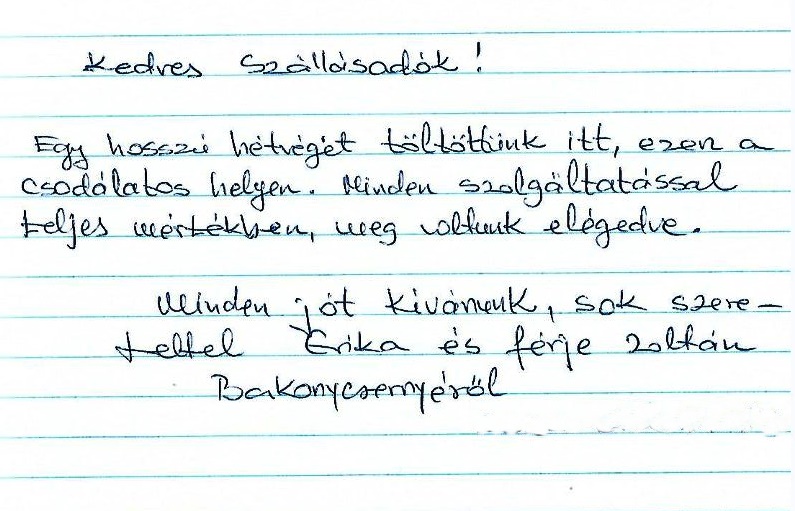 Kedves Szállásadók!
Egy hosszú hétvégét töltöttünk itt, ezen a
csodálatos helyen. Minden szolgáltatással
teljes mértékben, meg voltunk elégedve.
Minden jót kivánunk, sok szere-
tettel Erika és férje Zoltán
Bakonycsernyéről